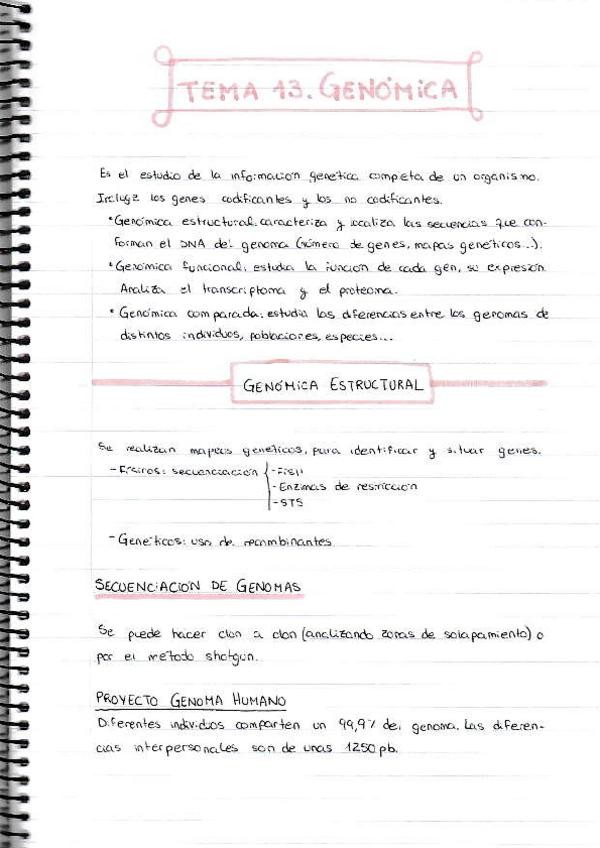 TEMA 13. GENÓMICA
Es el estudio de la información genética completa de un organismo.
Incluye los genes codificantes y los no codificantes.
• Genómica estructural: caracteriza y localiza las secuencias que con-
forman el DNA del genoma (número de genes, mapas genéticos...).
• Genómica funcional: estudia la función de cada gen, su expresión.
Analiza el transcriptoma y el proteoma.
• Genómica comparada: estudia las diferencias entre los genomas de
distintos individuos, poblaciones, especies...
GENÓMICA ESTRUCTURAL
Se realizan mapas genéticos, para identificar y situar genes.
- Físicos: secuenciación { - FISH
- Enzimas de restricción
- STS
- Genéticos: uso de recombinantes
SECUENCIACIÓN DE GENOMAS
Se puede hacer clon a clon (analizando zonas de solapamiento) o
por el método shotgun.
PROYECTO GENOMA HUMANO
Diferentes individuos comparten un 99,9% del genoma. Las diferen-
cias interpersonales son de unas 1250 pb.